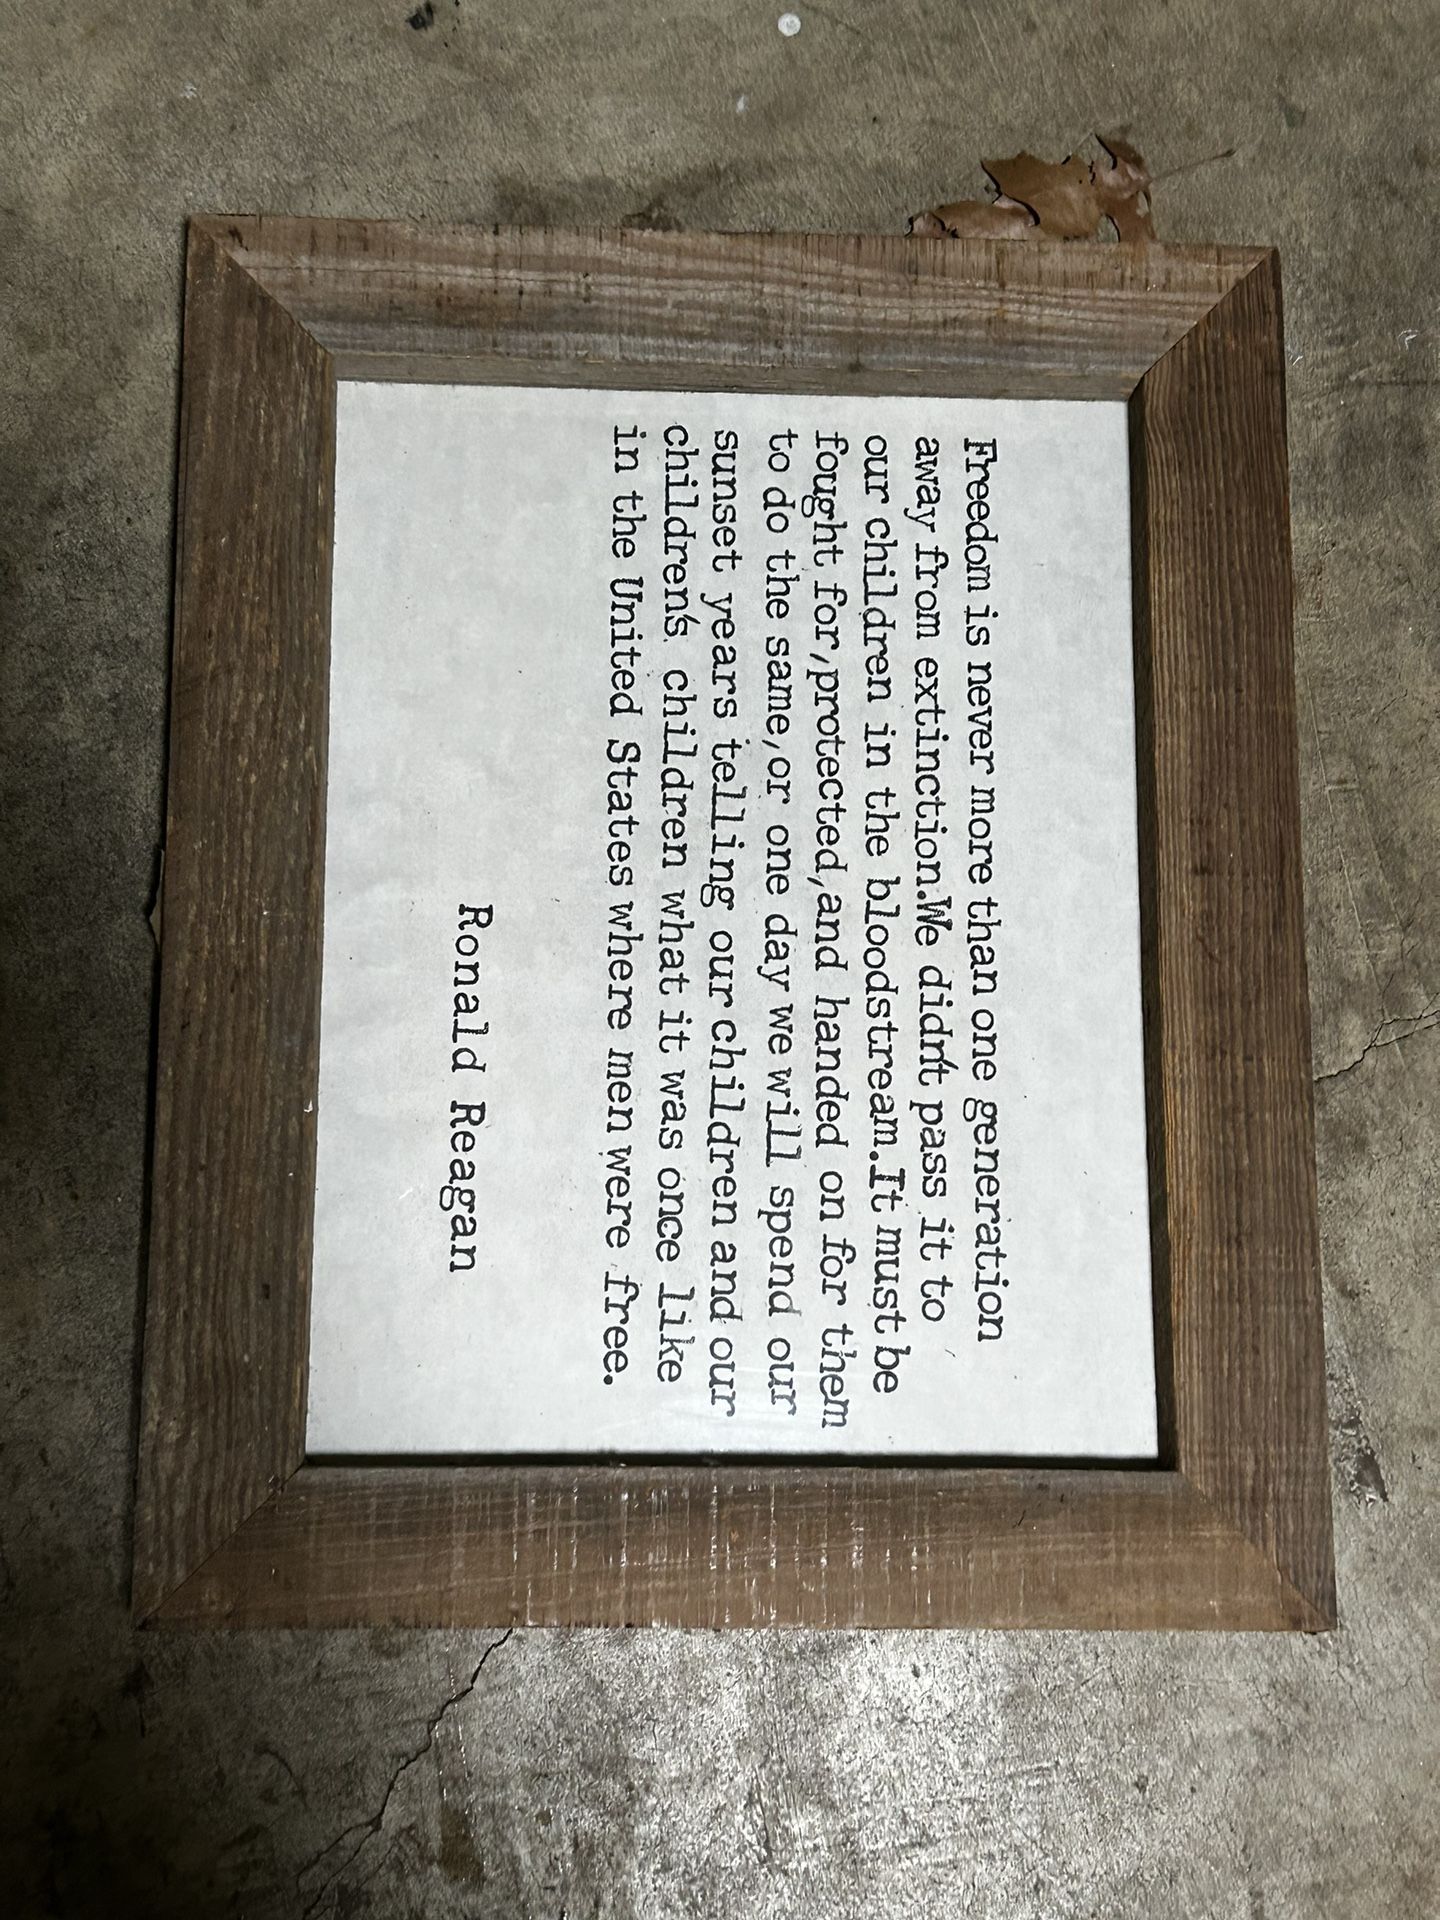 Freedom is never more than one generation
away from extinction.We didn't pass it to
our children in the bloodstream.It must be
fought for,protected,and handed on for them
to do the same,or one day we will spend our
sunset years telling our children and our
children's children what it was once like
in the United States where men were free.
Ronald Reagan